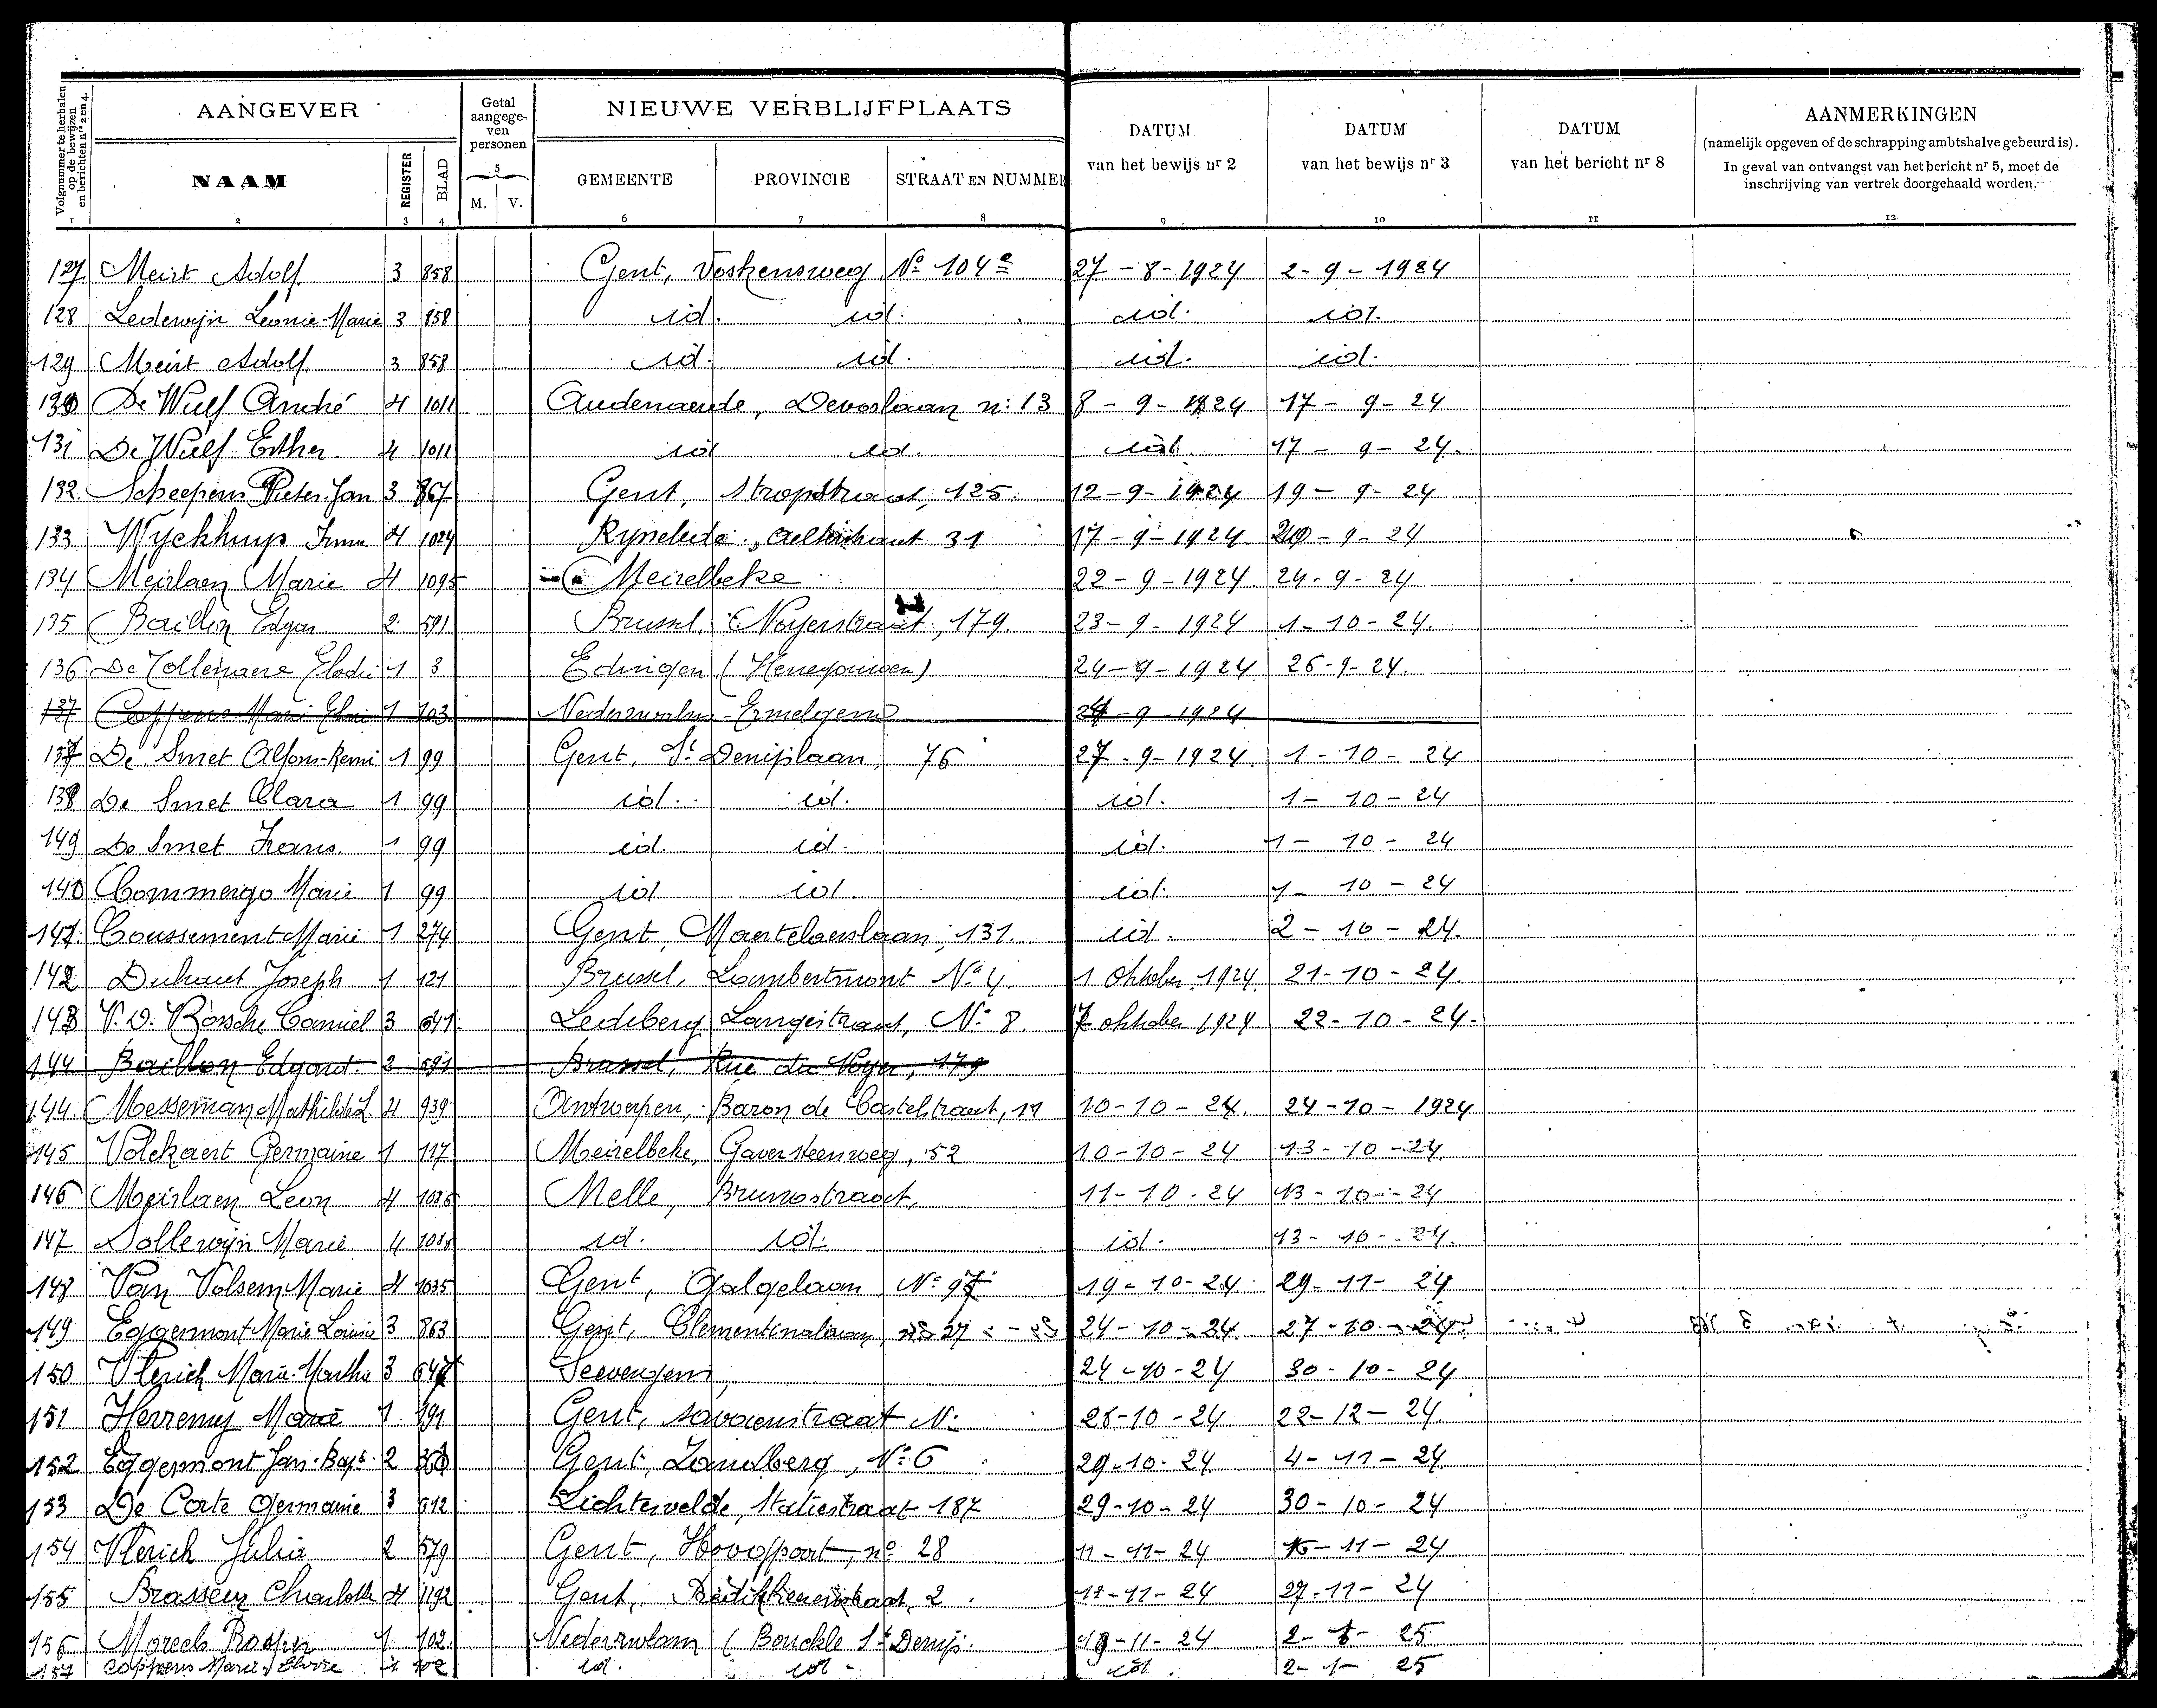 Volgnummer te herhalen op de bewijzen en berichten nrs 2 en 4.
AANGEVER
Getal aangegeven personen
NIEUWE VERBLIJFPLAATS
DATUM van het bewijs nr 2
DATUM van het bewijs nr 3
DATUM van het bericht nr 8
AANMERKINGEN
(namelijk opgeven of de schrapping ambtshalve gebeurd is).
In geval van ontvangst van het bericht nr 5, moet de inschrijving van vertrek doorgehaald worden.
NAAM REGISTER BLAD M. V. GEMEENTE PROVINCIE STRAAT EN NUMMER
1 2 3 4 5 6 7 8 9 10 11 12
127 Meirt Adolf 3 858 Gent, Voskensweg No 104 27-8-1924 2-9-1924
128 Ledewijn Leonie-Marie 3 858 id. id. id. id.
129 Meirt Adolf 3 858 id. id. id. id.
130 De Wulf André 4 1011 Audenaerde, Devoslaan n: 13 8-9-1924 17-9-24
131 De Wulf Esther 4 1011 id id. id. 17-9-24.
132 Scheepens Pieter Jan 3 867 Gent, Stropstraat, 125. 12-9-1924 19-9-24
133 Wyckhuys Irma 4 1024 Aelterstraat 31 17-9-1924 -9-24
134 Meirlaen Marie 4 1095 Meirelbeke 22-9-1924 24-9-24
135 Baillon Edgar 2 591 Brussel, Noyerstraat, 179. 23-9-1924 1-10-24.
136 De Tollenaere Elodie 1 3 Edingen (Henegouwen) 24-9-1924 26-9-24.
137 Coppens Marie Elvire 1 103 Nederzwalm-Ermelgem -9-1924
137 De Smet Alfons-Remi 1 99 Gent, St Denijslaan, 76 27-9-1924. 1-10-24
138 De Smet Clara 1 99 id. id. id. 1-10-24
149 De Smet Frans 1 99 id. id. id. 1-10-24
140 Commergo Marie 1 99 id id. id. 1-10-24
141 Coussement Marie 1 274 Gent, Martelaerslaan, 131. id. 2-10-24.
142 Duhaut Joseph 1 121 Brussel, Lambertmont No 4 1 Oktober 1924 21-10-24.
143 V. D. Bossche Camiel 3 641 Ledeberg Langestraat, No 8. 7 oktober 1924 22-10-24.
144 Baillon Edgard 2 591 Brussel, Rue du Noyer, 179
144. Messeman Mathilde L. 4 939 Antwerpen, Baron de Castelstraat, 11 10-10-24. 24-10-1924
145 Volckaert Germaine 1 117 Meirelbeke, Gaversteenweg, 52 10-10-24 13-10-24
146 Meirlaen Leon 4 Melle, Brunostraat, 11-10-24 13-10-24
147 Dollewijn Marie 4 id. id. id. 13-10-24.
148 Van Volsem Marie 4 1035 Gent, Galgelaan No 97 19-10-24 29-11-24
149 Eggermont Marie Louise 3 863 Gent, Clementinalaan, 27 24-10-24. 27-10-24
150 Vlerick Marie-Martha 3 647 Seevergem, 24-10-24 30-10-24
151 Herremy Marie 1 191 Gent, Savaenstraat N: 26-10-24 22-12-24
152 Eggermont Jan-Bapt. 2 Gent, Zandberg, No 6 29-10-24 4-11-24
153 De Corte Germaine 3 612 Lichtervelde, Statiestraat 187 29-10-24 30-10-24
154 Vlerick Julia 2 579 Gent, Hoofdpoort, no 28 11-11-24 -11-24
155 Brasseur Charlotte 4 1192 Gent, 2. -11-24 27-11-24
156 Moreels 1 102. Nederzwalm (Bouckle St Denijs. 19-11-24 2-1-25
157 Coppens Marie-Elvire 1 102 id. id. id. 2-1-25